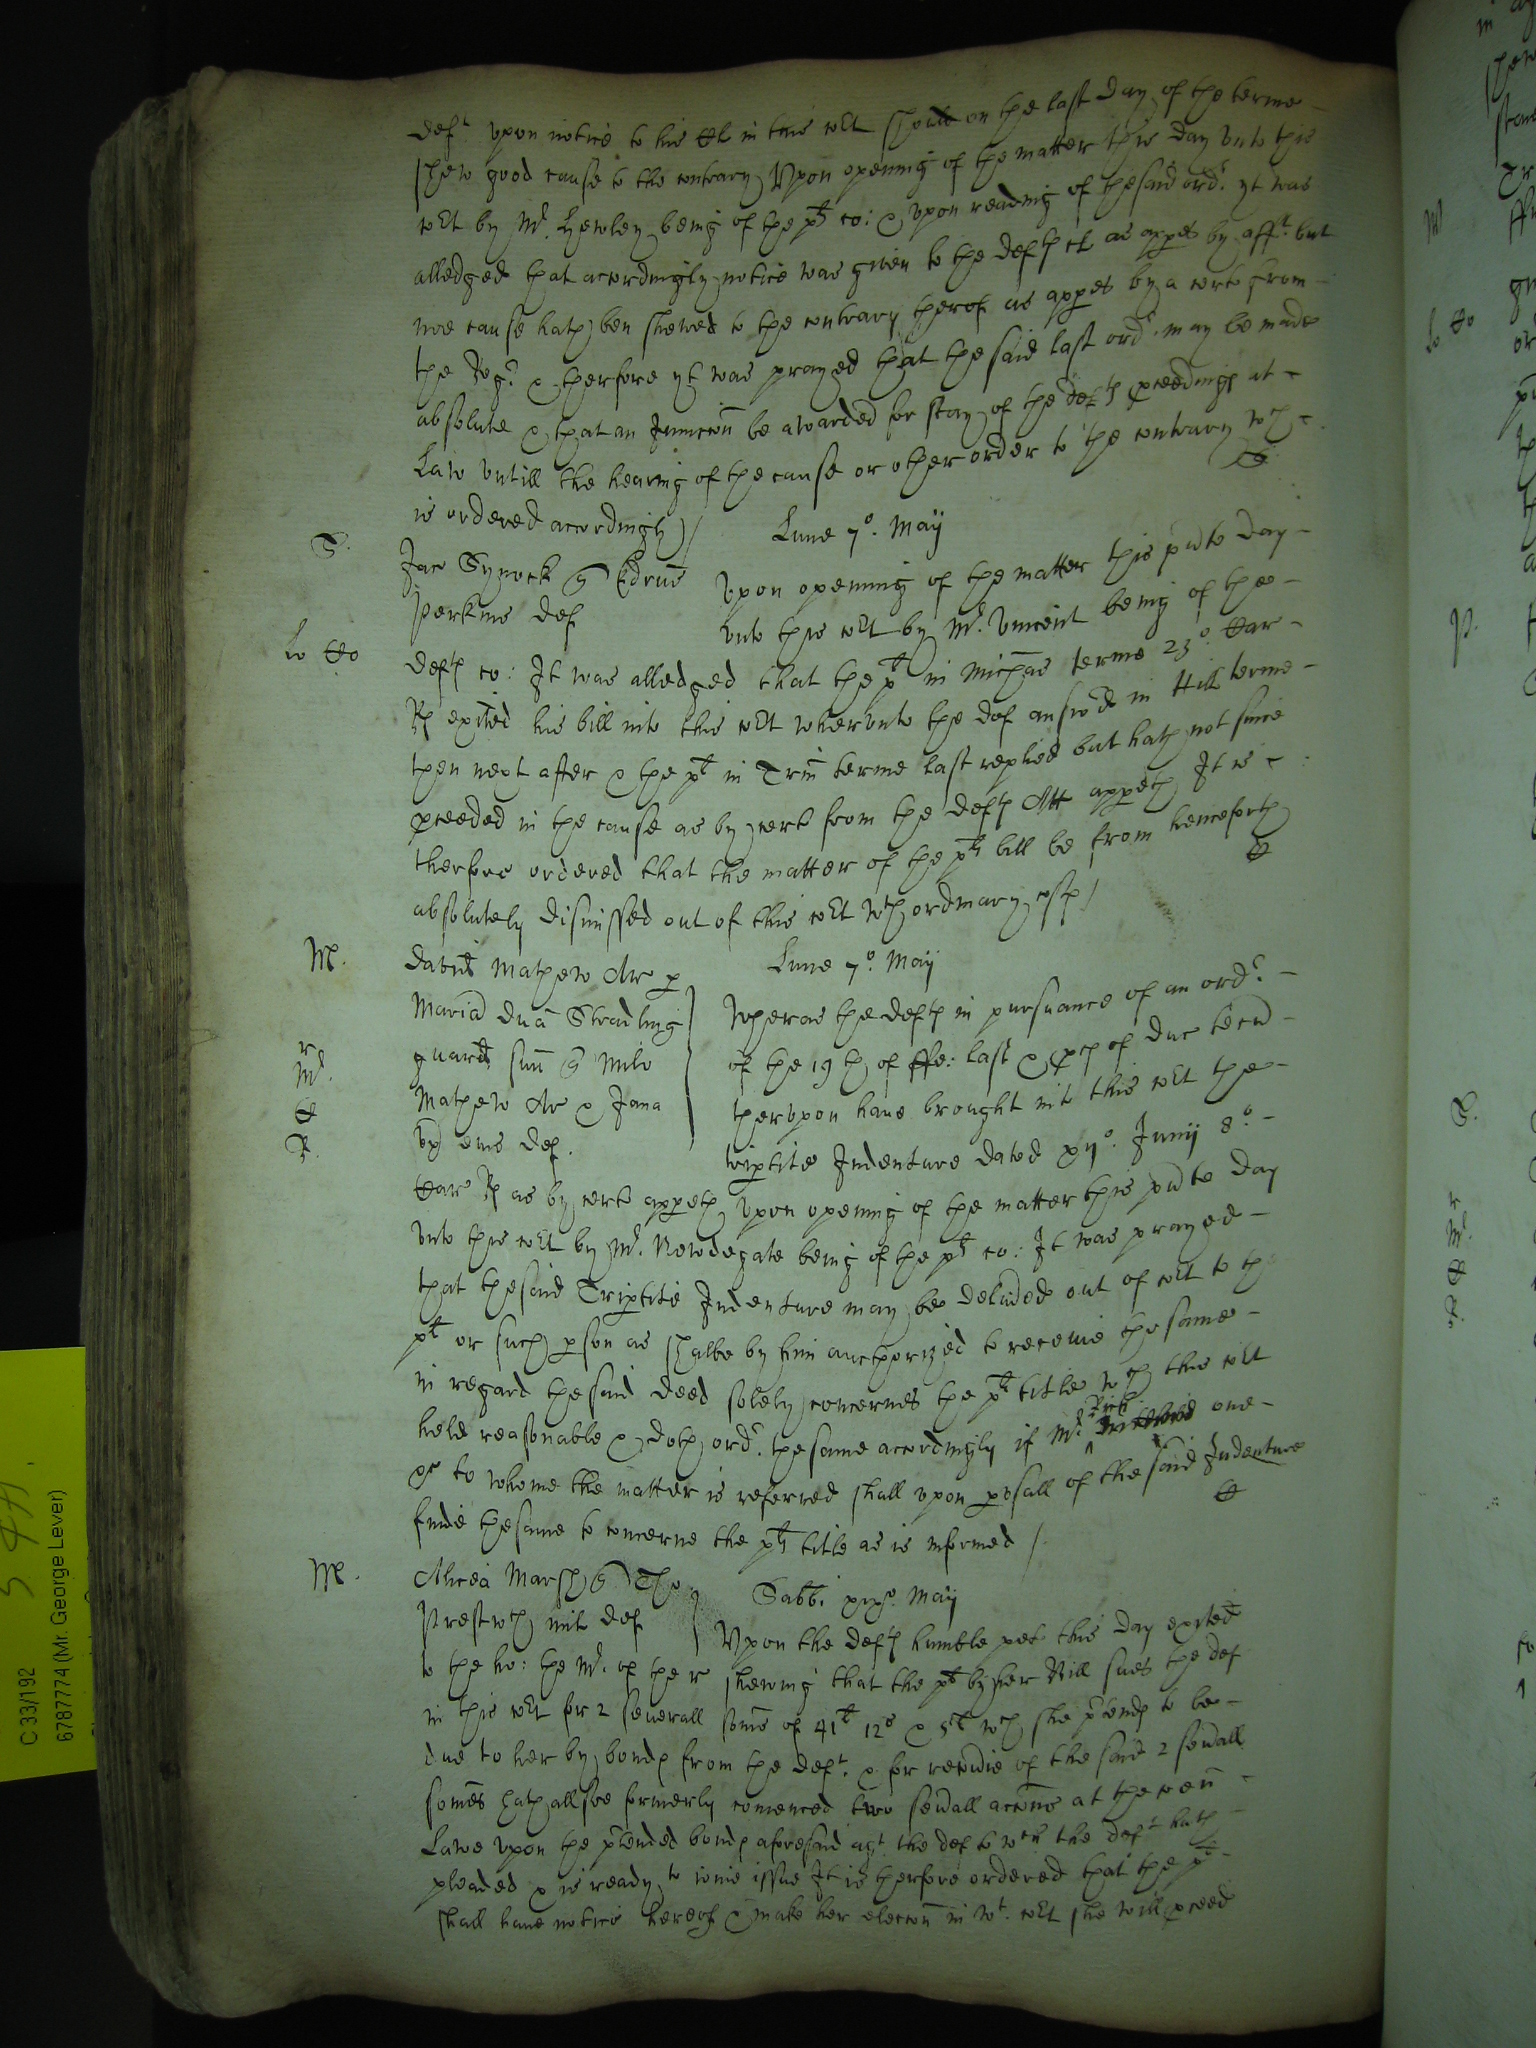 deft upon notice to his Cl in this Cort should on the last day of the terme
shew good cause to the contrary Upon opening of the matter this day unto this
Cort by Mr. Hewley being of the plts co: & upon reading of the said ordr. yt was
alledged that accordingly notice was given to the defts Cl as appes by afft. but
noe cause hath ben shewed to the contrary therof as appes by a cert from
the Regr. & therfore yt was prayed that the said last ordr. may be made
absolute & that an Iniuncon be awarded for stay of the defts pceedings at
Law untill the hearing of the cause or other order to the contrary wch
is ordered accordingly /
Lune 7o. Maij
S.
Jaco Synock q Edrus
Perkins def
Upon opening of the matter this pnte day
unto this Cort by Mr. Vincent being of the
defts co: It was alledged that the plt in Michas terme 23o. Car
R exited his bill into this Cort wherunto the def answed in Hill terme
then next after & the plt in Trin terme last replied but hath not since
pceeded in the cause as by cert from the defts Att appeth It is
therfore ordered that the matter of the plts bill be from henceforth
absolutely dismissed out of this Cort wth ordinary costs /
M.
Lune 7o. Maij
David Mathew Ar p
Maria dna Stradling
guard suu q Milo
Mathew Ar & Jana
ux eius def.
r
Mr.
R.
Wheras the defts in pursuance of an ordr.
of the 19th of ffe: last & pces of duc tecu
therupon have brought into this Cort the
triptite Indenture dated xijo. Junij 8o.
Car R as by cert appeth Upon opening of the matter this pnte day
unto this Cort by Mr. Newdegate being of the plts co: It was prayed
that the said Triptite Indenture may be delived out of Cort to the
plt or such pson as shalbe by him aucthorized to receive the same
in regard the said deed solely concernes the plts title wch this Cort
held reasonable & doth ordr. the same accordingly if Mr. Rich one
&c to whome the matter is referred shall upon pusall of the said Indenture
finde the same to concerne the plts title as is informed /
M.
Alicea Marsh q Tho
Prestwch milt def
Sabbi xixo. Maij
Upon the defts humble pet this day exited
to the ho: the Mr. of the r shewing that the plt by her Bill sues the def
in this Cort for 2 severall somes of 41l 12s & 5l wch she ptends to be
due to her by bonds from the deft. & for recovie of the said 2 sevall
somes hath allsoe formerly comenced two sevall accons at the coen
Lawe upon the ptended bonds aforesaid agt the def to wch the deft hath
pleaded & is ready to ioine issue It is therfore ordered that the plt
shall have notice hereof & make her eleccon in wt. Cort she will pceed
C 33/192
6787774 (Mr. George Lever)